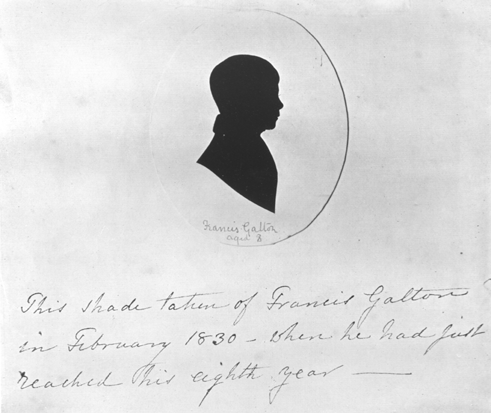 Francis Galton
aged 8
This shade taken of Francis Galton
in February 1830 - when he had just
reached his eighth year —